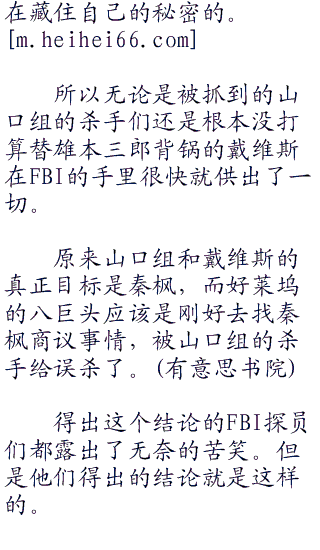 在藏住自己的秘密的。
[m.heihei66.com]
所以无论是被抓到的山
口组的杀手们还是根本没打
算替雄本三郎背锅的戴维斯
在FBI的手里很快就供出了一
切。
原来山口组和戴维斯的
真正目标是秦枫，而好莱坞
的八巨头应该是刚好去找秦
枫商议事情，被山口组的杀
手给误杀了。(有意思书院)
得出这个结论的FBI探员
们都露出了无奈的苦笑。但
是他们得出的结论就是这样
的。